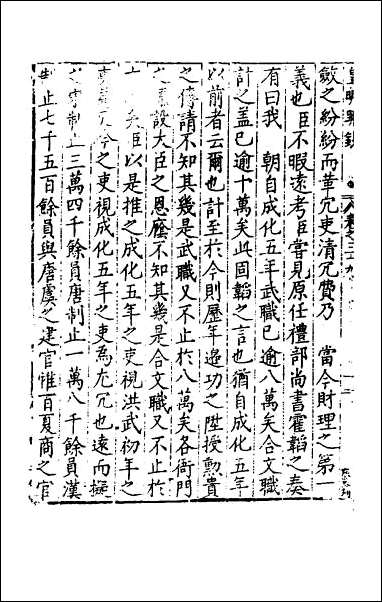 斂之紛紛而革冗吏清冗費乃　當今財理之第一
義也臣不暇遠考臣嘗見原任禮部尚書霍韜之奏
有曰我　朝自成化五年武職已逾八萬矣合文職
計之蓋已逾十萬矣此固韜之言也猶自成化五年
以前者云爾也計至於今則歷年邊功之陞授勳貴
之傳請不知其幾是武職又不止於八萬矣各衙門
之設大臣之恩廕不知其幾是合文職又不止於
矣臣以是推之成化五年之吏視洪武初年之
今之吏視成化五年之吏爲尤冗也遠而擬
宋制止三萬四千餘員唐制止一萬八千餘員漢
制止七千五百餘員與唐虞之建官惟百夏商之官